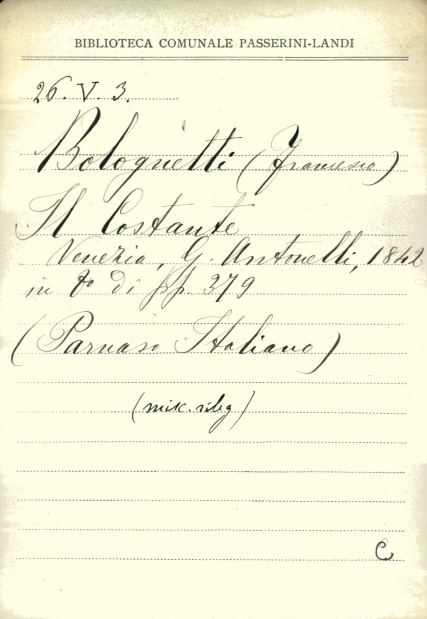 BIBLIOTECA COMUNALE PASSERINI-LANDI
26. V. 3.
Bolognetti (Francesco)
Il Costante
Venezia, G. Antonelli, 1842
in 8º di pp. 379
(Parnaso Italiano)
(misc. rileg)
C